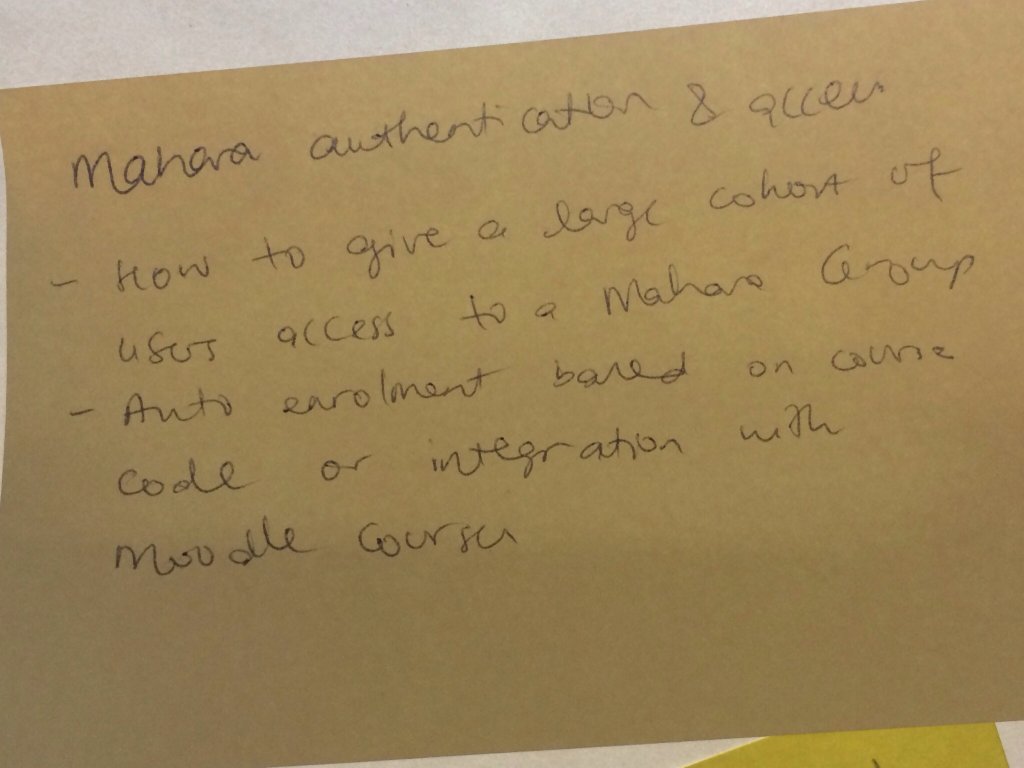 Mahara authentication & access
- How to give a large cohort of
users access to a Mahara Group
- Auto enrolment based on course
code or integration with
Moodle courses